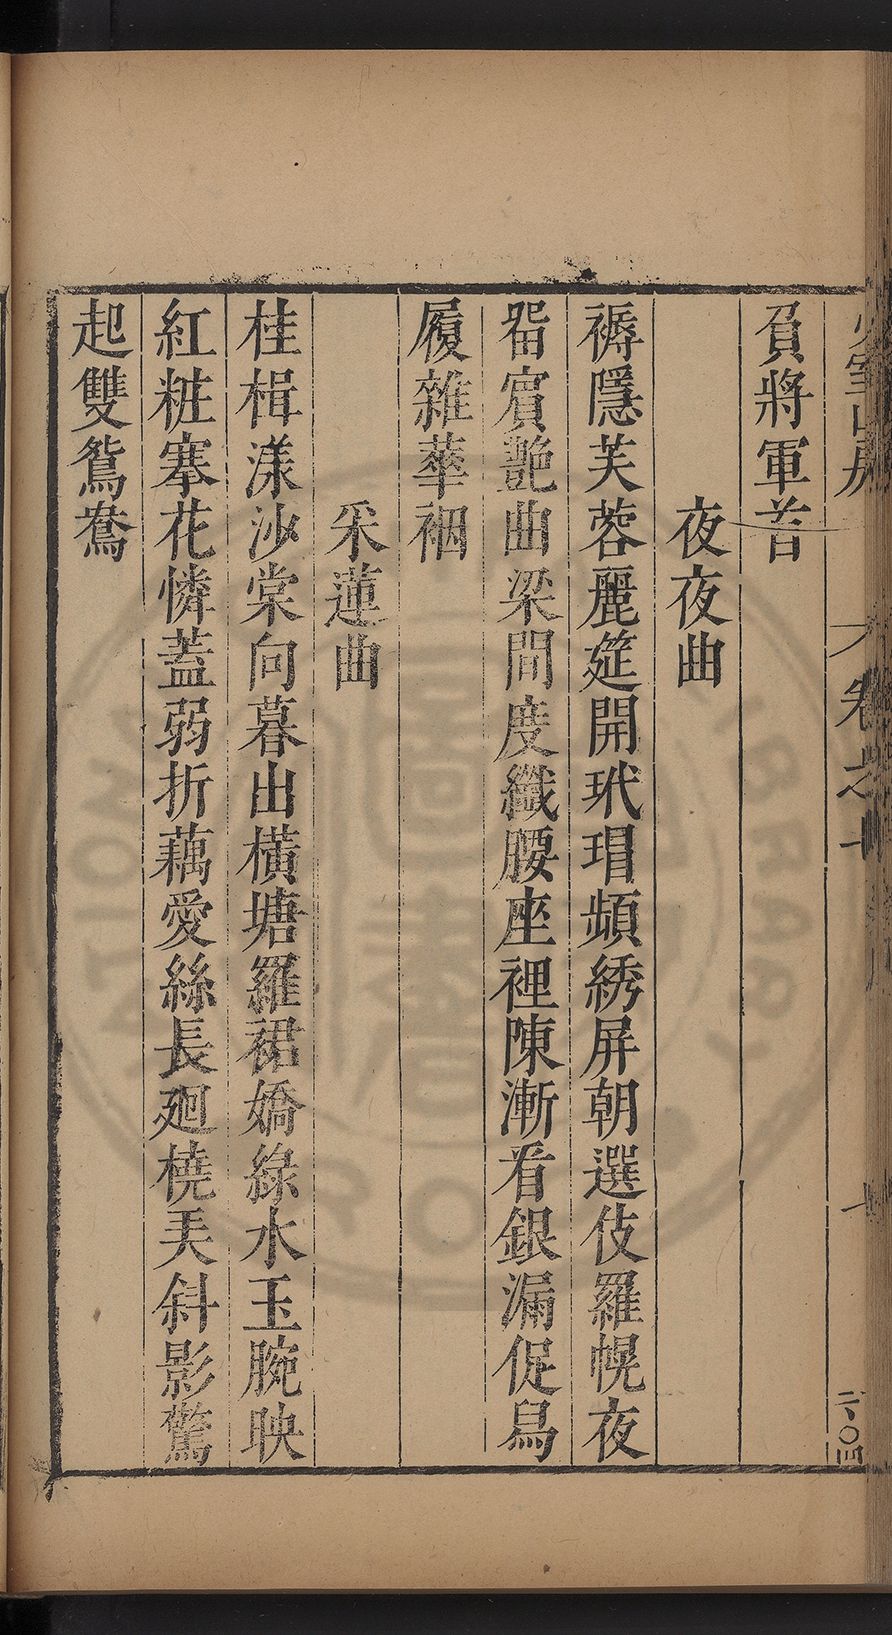 少室山房
卷之十
六〇四
負將軍首
夜夜曲
褥隱芙蓉麗筵開玳瑁頻綉屏朝選伎羅幌夜
畱賓艷曲梁間度纖腰座裡陳漸看銀漏促舄
履雜華裀
采蓮曲
桂楫漾沙棠向暮出橫塘羅裙嬌綠水玉腕映
紅粧搴花憐蓋弱折藕愛絲長廻橈美斜影驚
起雙鴛鴦